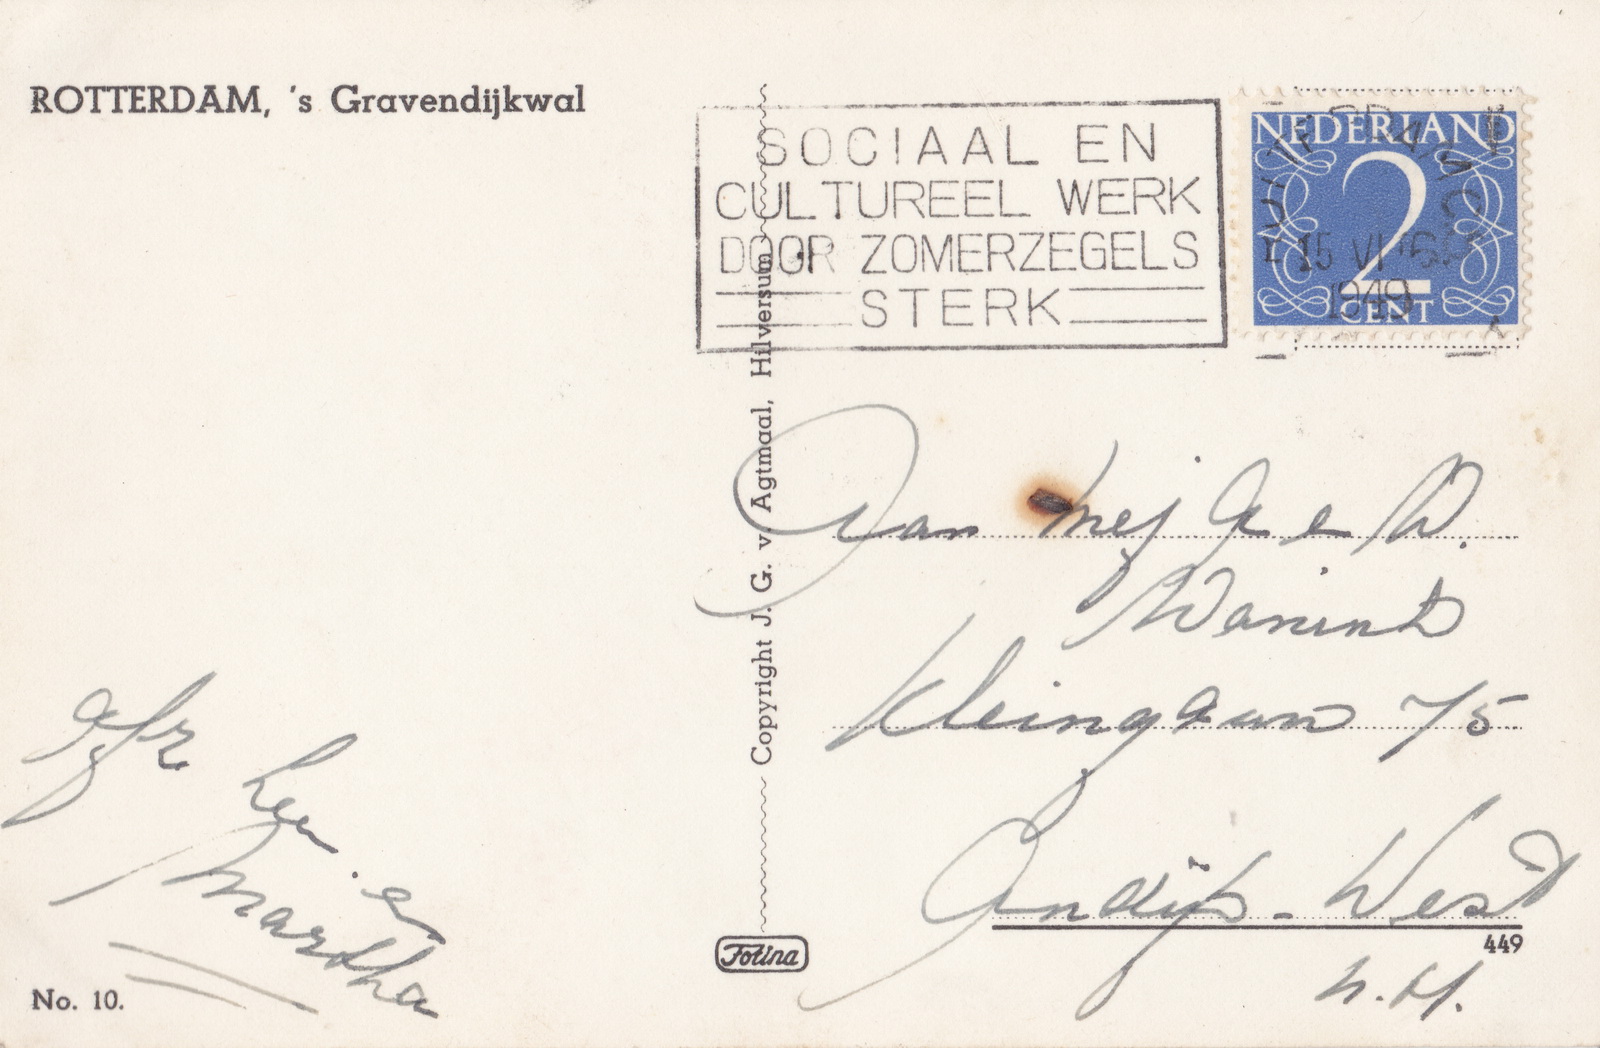 ROTTERDAM, 's Gravendijkwal
SOCIAAL EN
CULTUREEL WERK
DOOR ZOMERZEGELS
STERK
NEDERLAND
2
CENT
15 VI
1949
Copyright J. G. v. Agtmaal, Hilversum
Aan Mej G e W.
Wanink
Kleingaun 75
Andijk - West
N.H.
449
afz
Leen en
Martha
Fotina
No. 10.